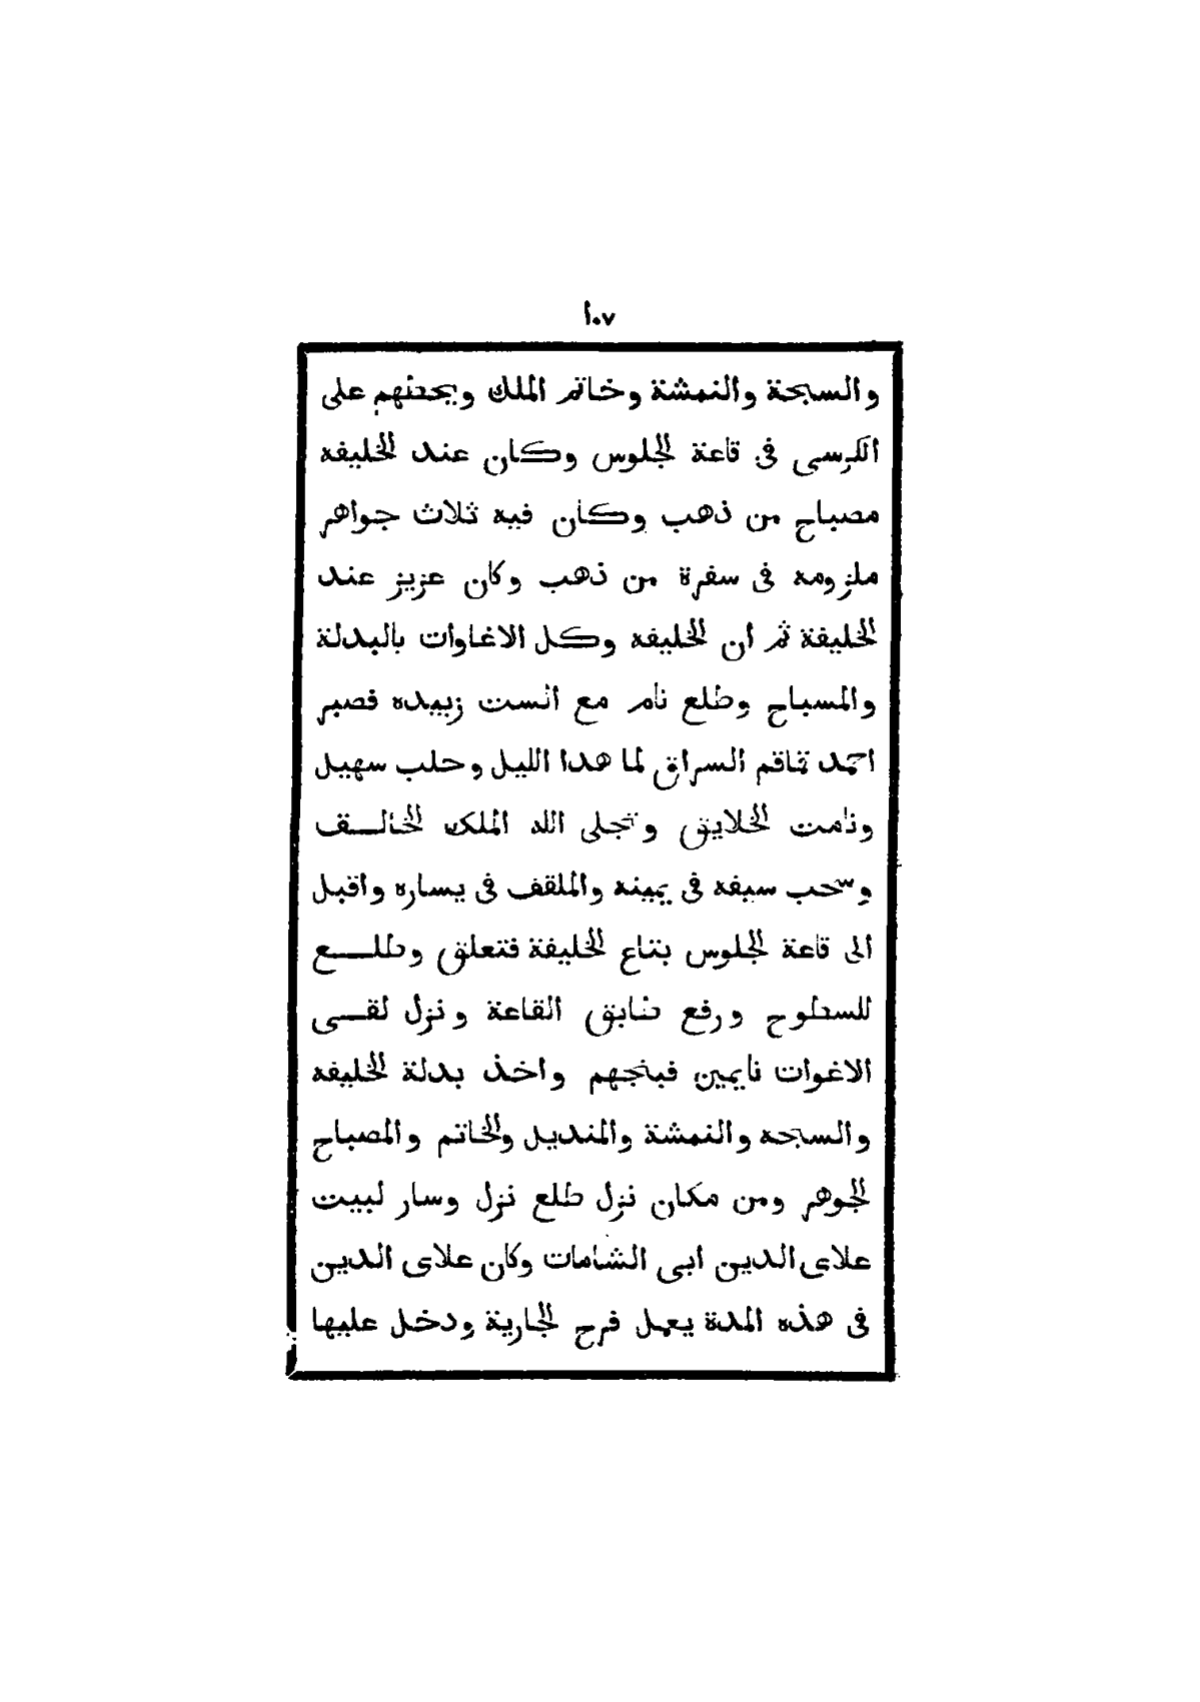 ١٠٧
والسبحة والنمشة وخاتم الملك ويحطهم على
الكرسى فى قاعة الجلوس وكان عند الخليفه
مصباح من ذهب وكان فيه ثلاث جواهر
ملزومه فى سفرة من ذهب وكان عزيز عند
الخليفة ثم ان الخليفه وكل الاغاوات بالبدلة
والمسباح وطلع نام مع الست زبيده فصبر
احمد قماقم السراق لما هدا الليل وحلب سهيل
ونامت الخلايق وتجلى الله الملك الخالـــق
وسحب سيفه فى يمينه والملقف فى يساره واقبل
الى قاعة الجلوس بتاع الخليفة فتعلق وطلـــع
للسطوح ورفع طابق القاعة ونزل لقــى
الاغوات نايمين فبنجهم واخذ بدلة الخليفه
والسبحه والنمشة والمنديل والخاتم والمصباح
الجوهر ومن مكان نزل طلع نزل وسار لبيت
علاى الدين ابى الشامات وكان علاى الدين
فى هذه المدة يعمل فرح الجارية ودخل عليها